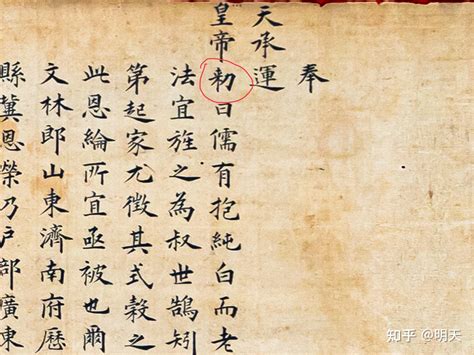 奉
天承運
皇帝勅曰儒有抱純白而老
法宜旌之為叔世鵠矧
第起家尤徵其式穀之
此恩綸所宜亟被也爾
文林郎山東濟南府歷
縣冀恩榮乃戶部廣東
知乎 @明天